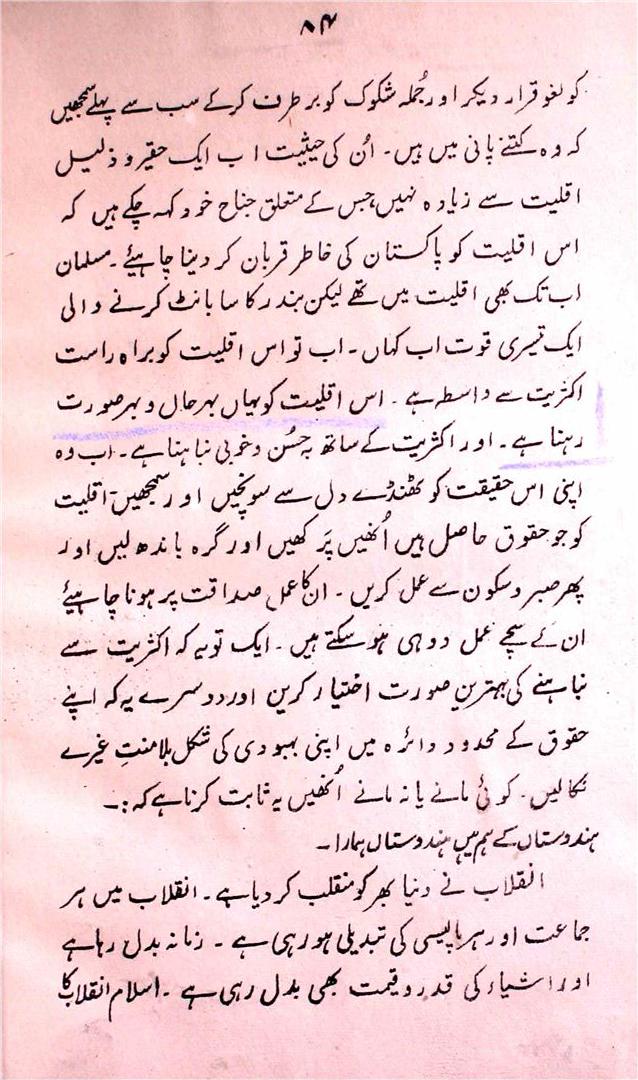 ۸۴
کو لغو قرار دیکر اور جُملہ شکوک کو برطرف کرکے سب سے پہلے سمجھیں
کہ وہ کتنے پانی میں ہیں۔ اُن کی حیثیت اب ایک حقیر و ذلیل
اقلیت سے زیادہ نہیں جس کے متعلق جناح خود کہہ چکے ہیں کہ
اس اقلیت کو پاکستان کی خاطر قربان کر دینا چاہیئے۔ مسلمان
اب تک بھی اقلیت میں تھے لیکن بندر کا سا بانٹ کرنے والی
ایک تیسری قوت اب کہاں۔ اب تو اس اقلیت کو براہ راست
اکثریت سے واسطہ ہے۔ اس اقلیت کو یہاں بہرحال و بہر صورت
رہنا ہے۔ اور اکثریت کے ساتھ بہ حُسن و خوبی نباہنا ہے۔ اب وہ
اپنی اس حقیقت کو ٹھنڈے دل سے سونچیں اور سمجھیں۔ اقلیت
کو جو حقوق حاصل ہیں اُنھیں پَرکھیں اور گرہ باندھ لیں اور
پھر صبر و سکون سے عمل کریں۔ ان کا عمل صداقت پر ہونا چاہیئے
ان کے سچے عمل دو ہی ہو سکتے ہیں۔ ایک تو یہ کہ اکثریت سے
نباہنے کی بہترین صورت اختیار کریں اور دوسرے یہ کہ اپنے
حقوق کے محدود دائرہ میں اپنی بہبودی کی شکل بلا منتِ غیرے
نکالیں۔ کوئی مانے یا نہ مانے اُنھیں یہ ثابت کرنا ہے کہ:۔
ہندوستاں کے ہم ہیں ہندوستاں ہمارا۔
انقلاب نے دنیا بھر کو منقلب کر دیا ہے۔ انقلاب میں ہر
جماعت اور ہر پالیسی کی تبدیلی ہو رہی ہے۔ زمانہ بدل رہا ہے
اور اشیاء کی قدر و قیمت بھی بدل رہی ہے۔ اسلام انقلاب کا